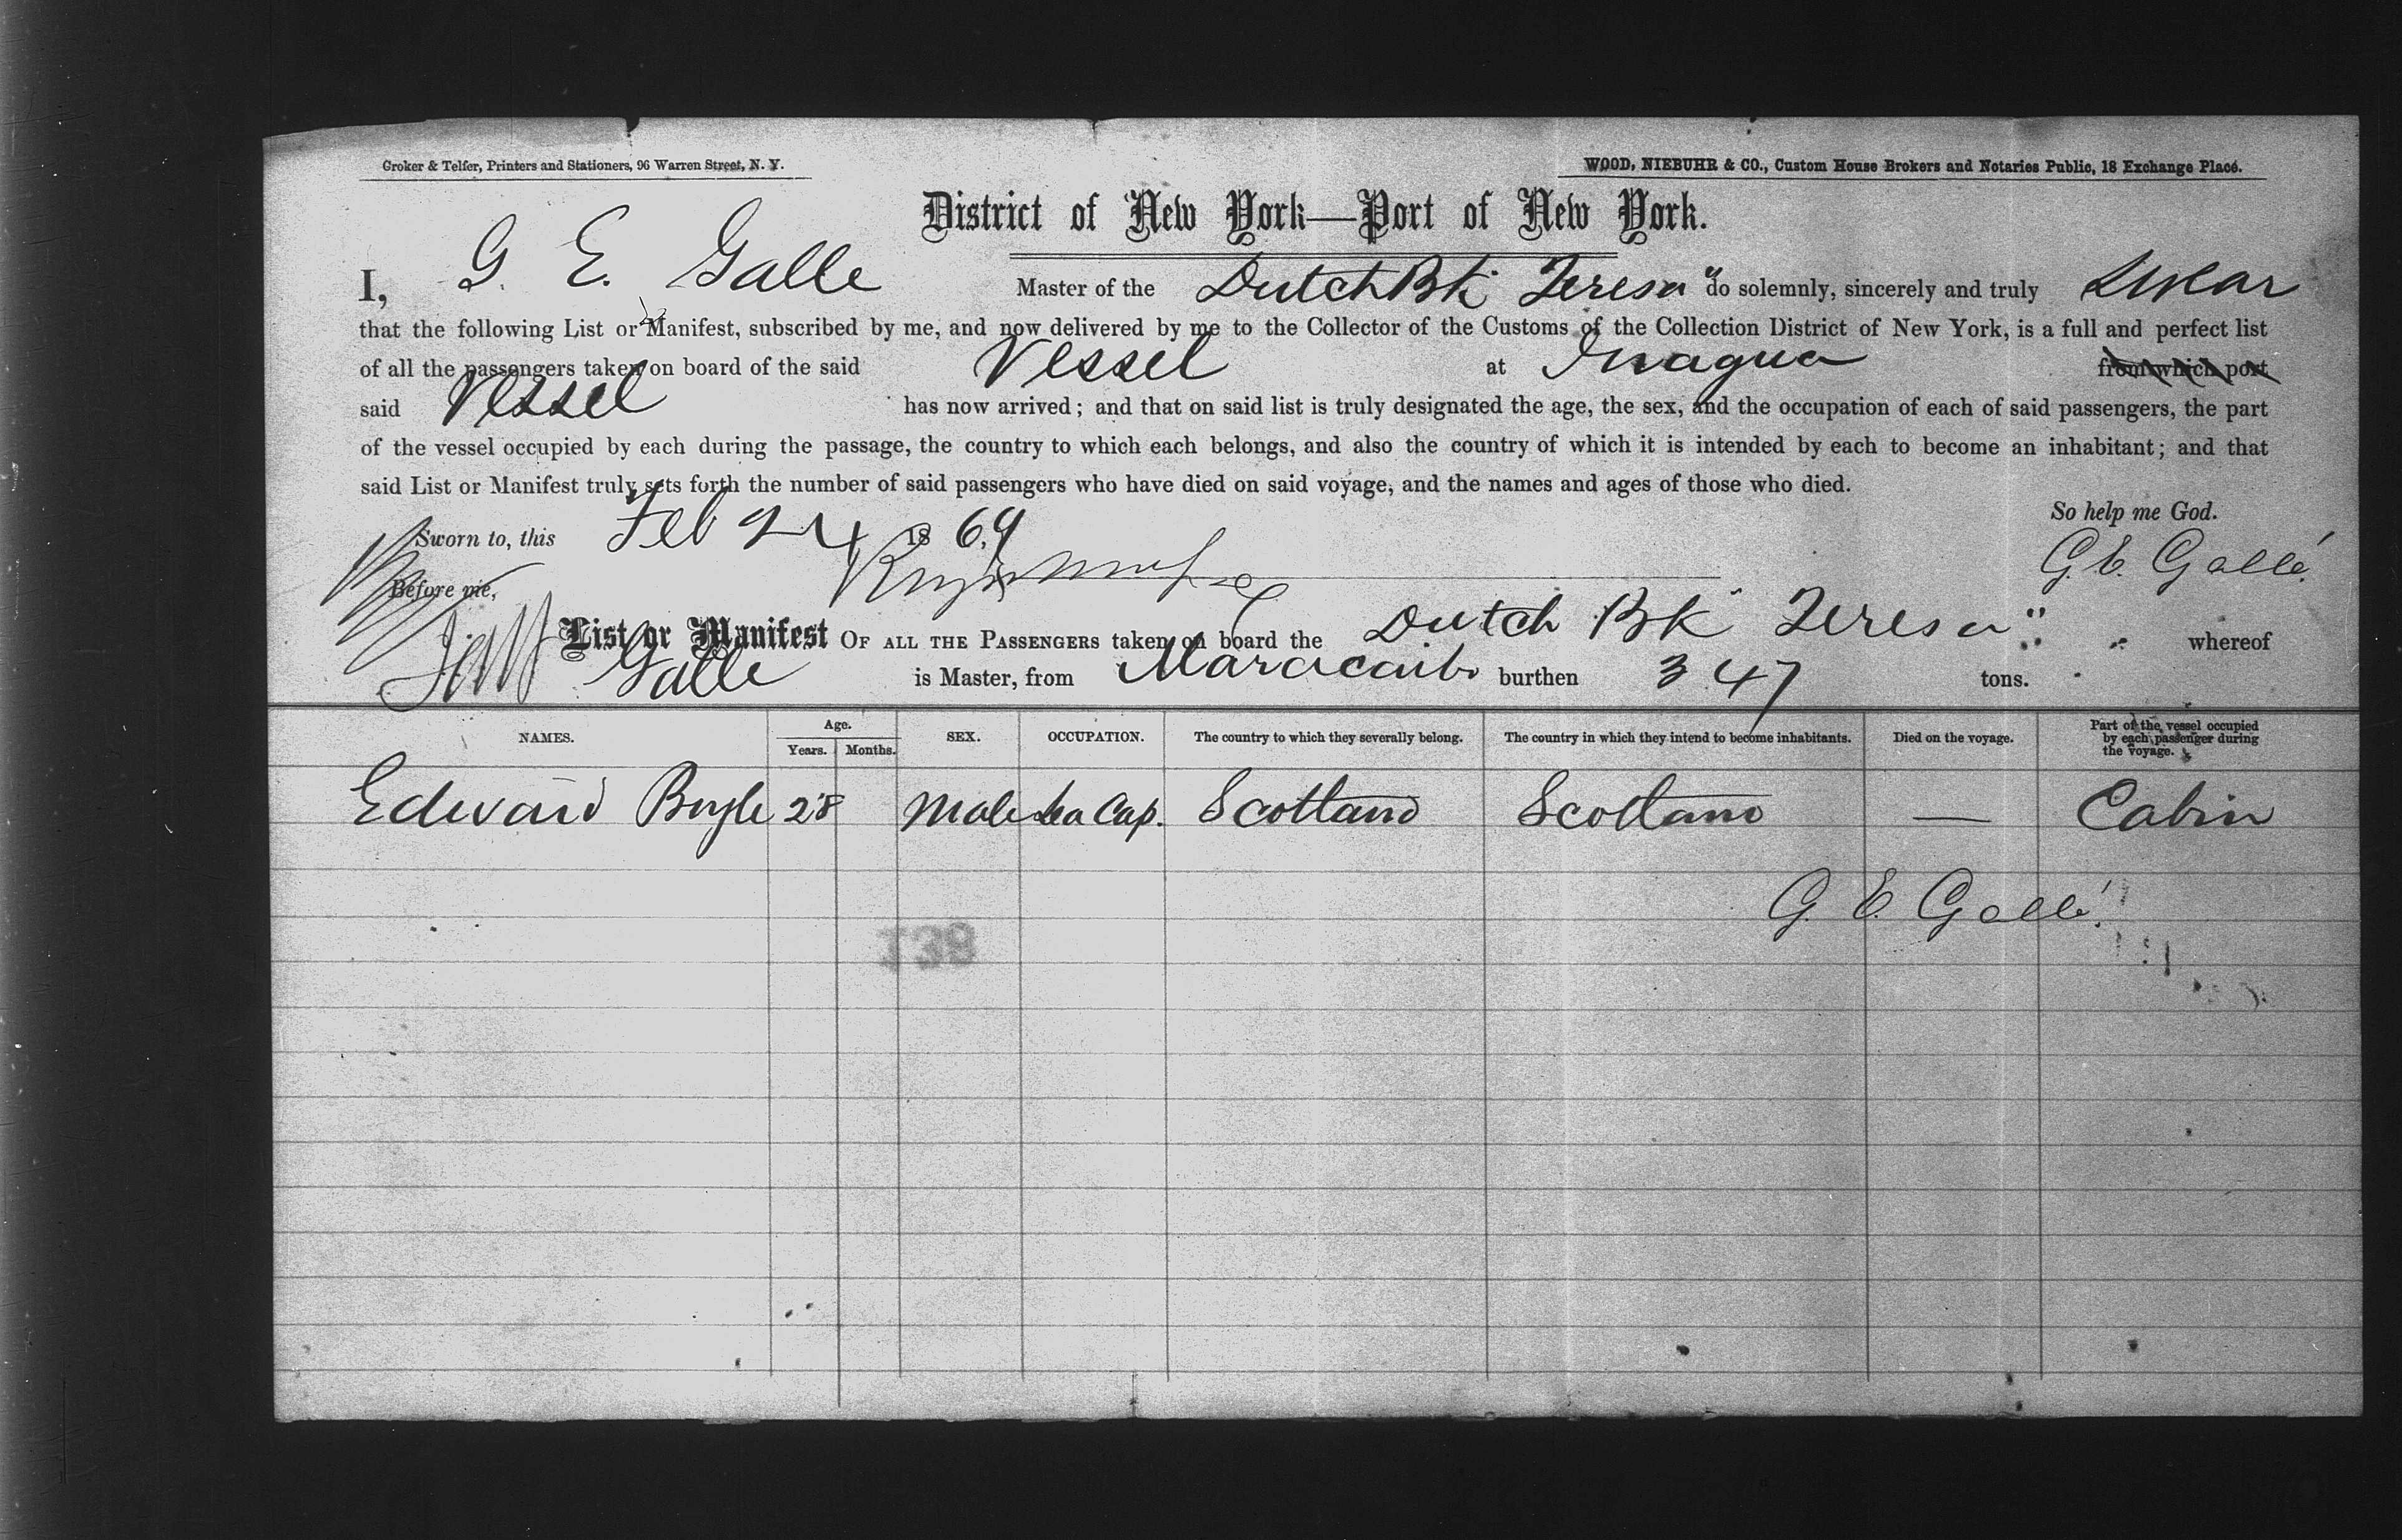 Groker & Telfer, Printers and Stationers, 96 Warren Street, N. Y.
WOOD, NIEBUHR & CO., Custom House Brokers and Notaries Public, 18 Exchange Place.
District of New York—Port of New York.
I, G. E. Galle Master of the Dutch Bk "Teresa" do solemnly, sincerely and truly swear
that the following List or Manifest, subscribed by me, and now delivered by me to the Collector of the Customs of the Collection District of New York, is a full and perfect list
of all the passengers taken on board of the said Vessel at Inagua from which port
said Vessel has now arrived; and that on said list is truly designated the age, the sex, and the occupation of each of said passengers, the part
of the vessel occupied by each during the passage, the country to which each belongs, and also the country of which it is intended by each to become an inhabitant; and that
said List or Manifest truly sets forth the number of said passengers who have died on said voyage, and the names and ages of those who died.
So help me God.
Sworn to, this Feb 24 1869
G. E. Gallé
Before me,
List or Manifest OF ALL THE PASSENGERS taken on board the Dutch Bk "Teresa" whereof
Galle is Master, from Maracaibo burthen 347 tons.
NAMES. Age. Years. Months. SEX. OCCUPATION. The country to which they severally belong. The country in which they intend to become inhabitants. Died on the voyage. Part of the vessel occupied by each passenger during the voyage.
Edward Boyle 28 Male Sea Cap. Scotland Scotland — Cabin
G. E. Gallé
139